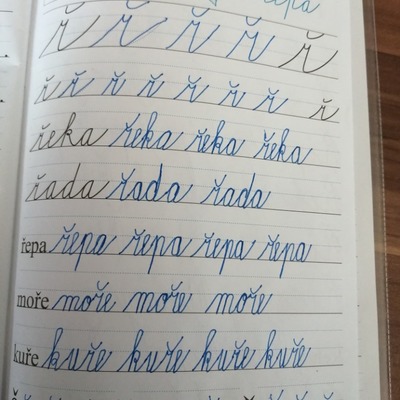 řepa
ř ř ř ř ř
ř ř ř ř ř ř ř ř
řeka řeka řeka řeka
řada řada řada
řepa řepa řepa řepa řepa
moře moře moře moře
kuře kuře kuře kuře kuře